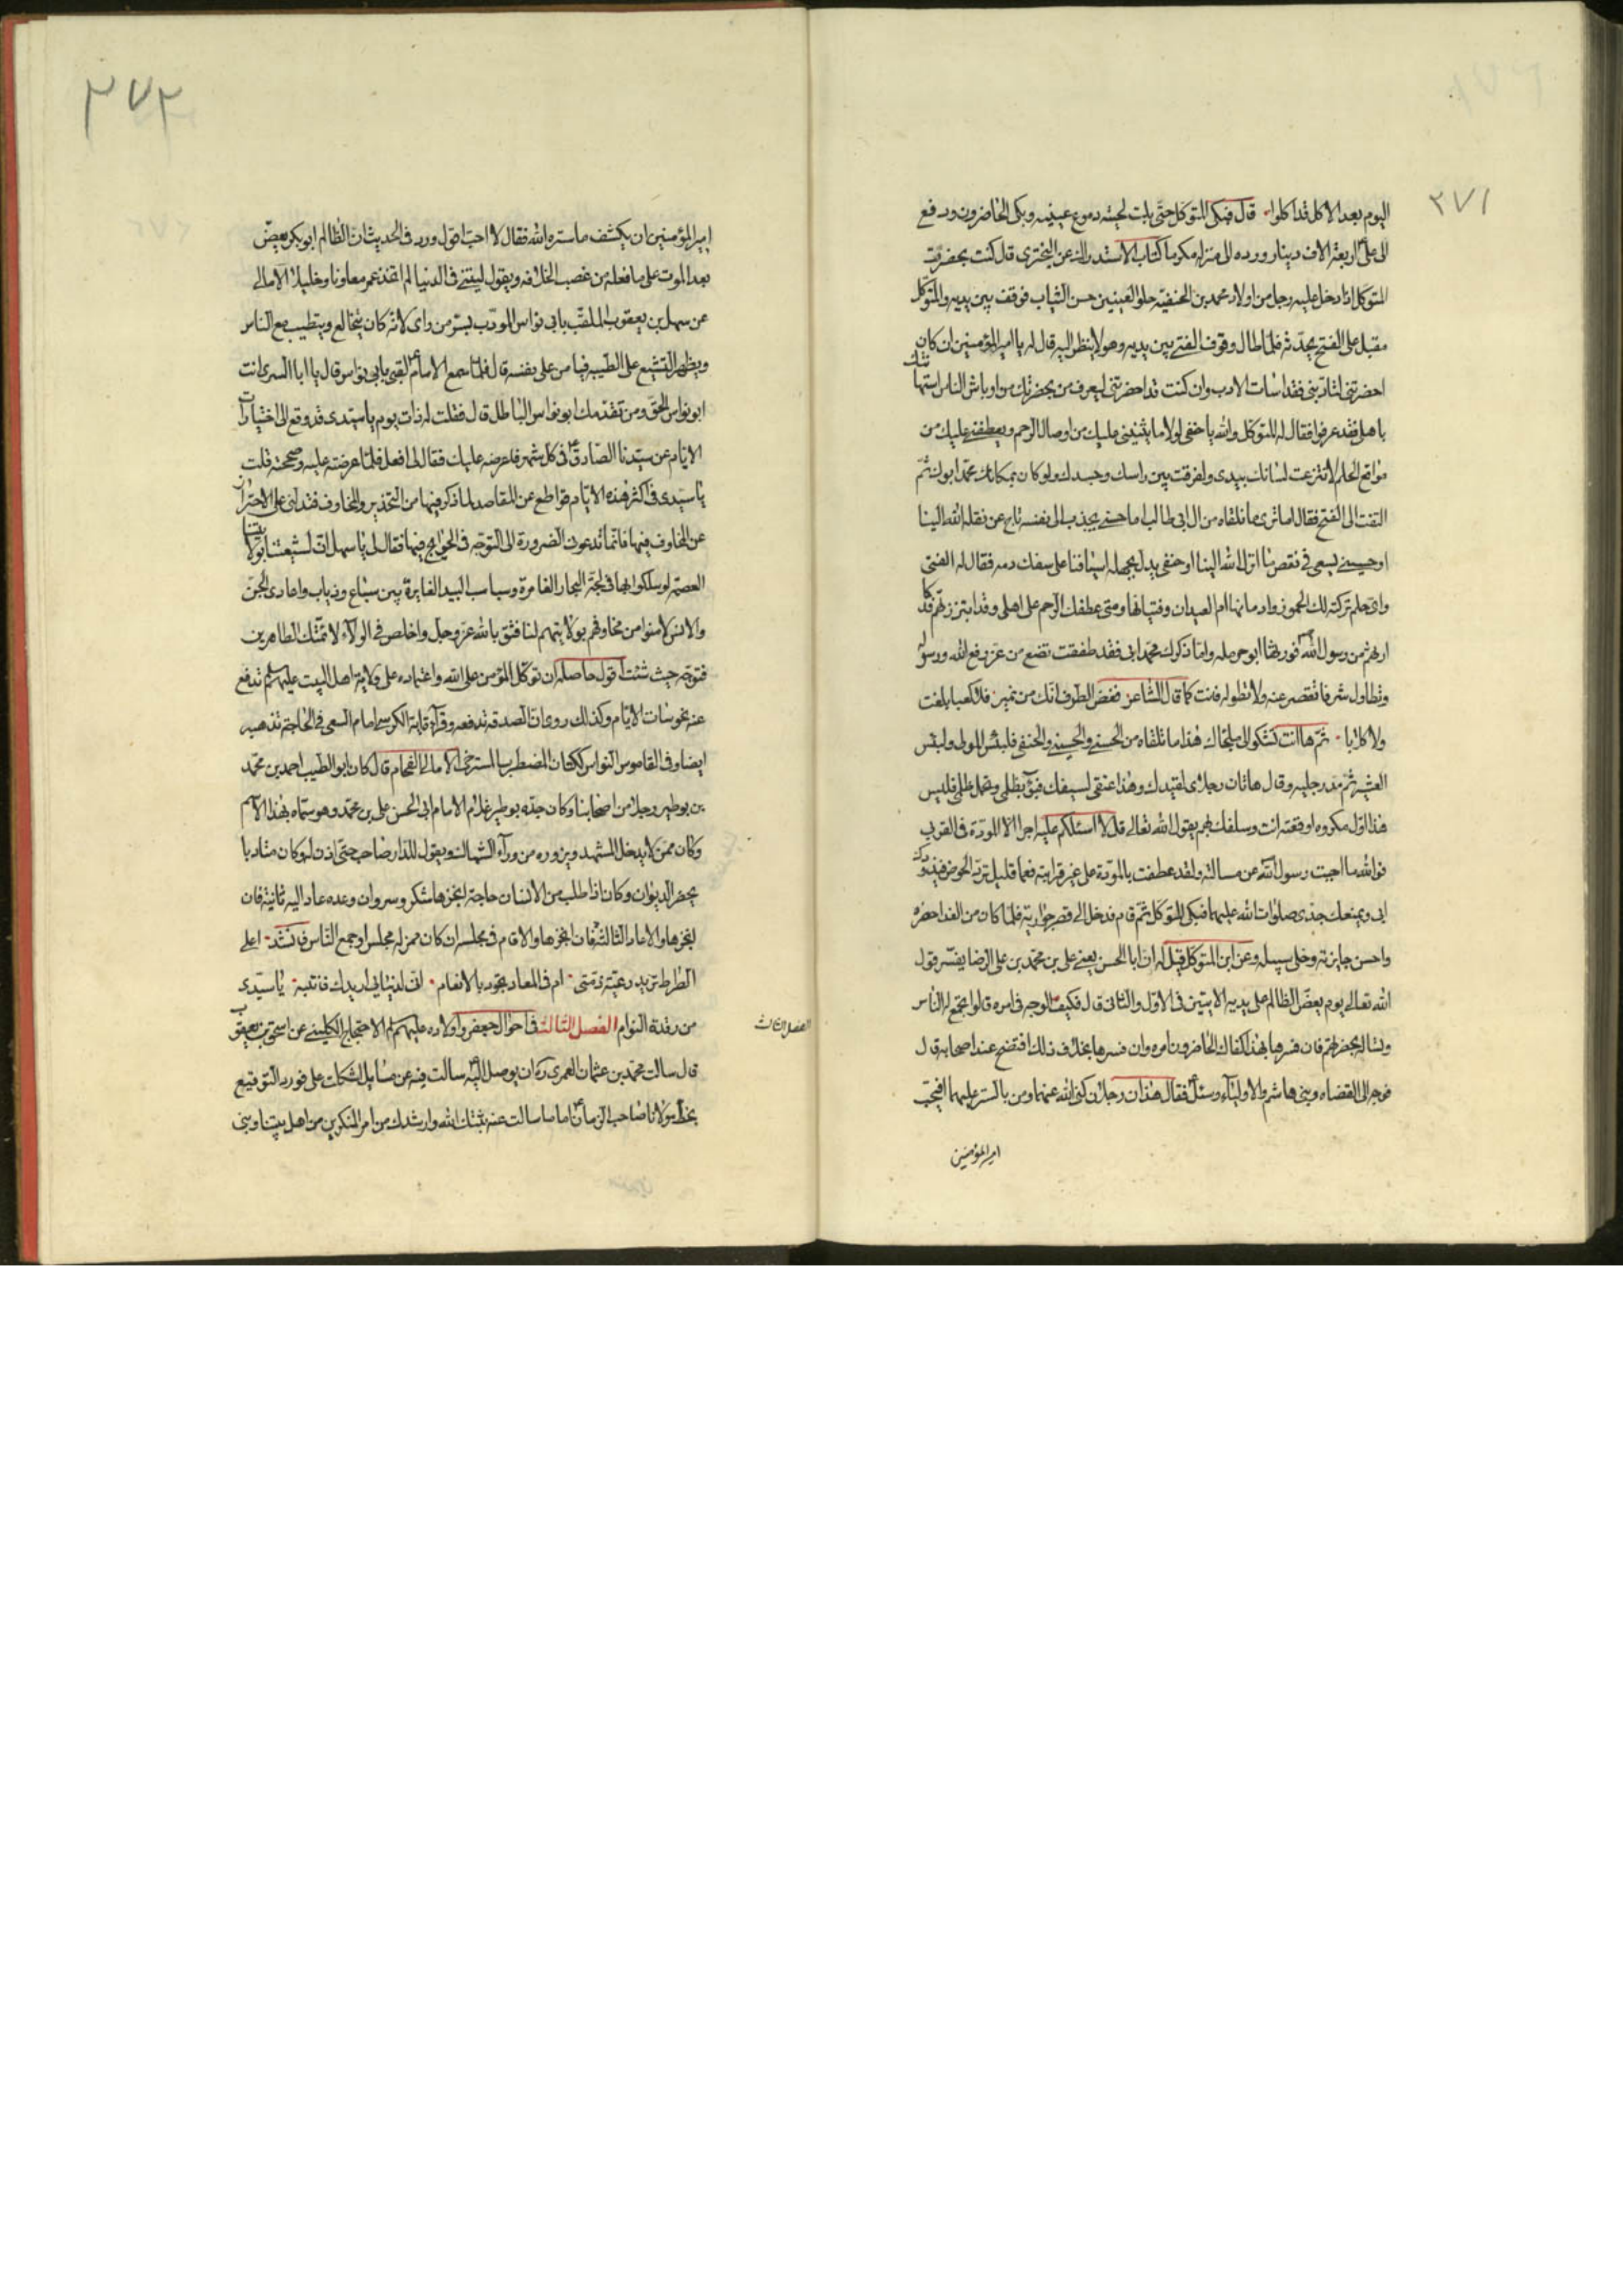 ٢٧١
اليوم بعد الاكل قد اكلوا قال فبكى المتوكل حتى بلت لحيته دموع عينيه وبكى الحاضرون ودفع
الى علىّ اربعة الاف دينار ورده الى منزله مكرما كتاب الاستدراك عن البخترى قال كنت بحضرت
المتوكل اذ دخل عليه رجل من اولاد محمد بن الحنفيّه حلو العينين حسن الثياب فوقف بين يديه والمتوكّل
مقبل على الفتح يحدّثه فلمّا طال وقوف الفتى بين يديه وهو لا ينظر اليه قال له يا امير المؤمنين ان كان
احضرتنى لتأدبنى فقد اسات الادب وان كنت قد احضرتنى ليعرف من بحضرتك من اوباش الناس استهانتك
باهلى فقد عرفوا فقال له المتوكل والله يا حنفى لولا ما يثنينى عليك من اوصال الرحم ويعطفنى عليك من
مواقع الحلم لانتزعت لسانك بيدى ولفرقت بين راسك وجسدك ولو كان بمكانك محمّد ابوك ثمّ
التفت الى الفتح فقال اما ترى ما نلقاه من ال ابى طالب اما حسنى يجذب الى نفسه تاج عز نقله الله الينا
او حسينى يسعى فى نقص ما انزل الله الينا او حنفى يدل بجهله اسيافنا على سفك دمه فقال له الفتى
واىّ حلم تركته لك الخمور وادمانها ام العيدان وفتيانها ومتى عطفك الرحم على اهلى وقد ابتززتهم فدكا
ارثهم من رسول الله فورثها ابو حرمله وامّا ذكرك محمّد ابى فقد طفقت تضع من عزّ رفع الله ورسوله
وتطاول شرفا تقصر عنه ولا تطوله فانت كما قال الشاعر فغض الطرف انّك من نمير فلا كعبا بلغت
ولا كلابا ثمّ ها انت تشكو الى علجك هذا ما تلقاه من الحسنى والحسينى والحنفى فلبئس المولى ولبئس
العشير ثمّ مدّ رجليه وقال هاتان رجلاى لقيدك وهذا عنقى لسيفك فبؤ بظلمى وتحمل ظلمى فليس
هذا اوّل مكروه اوقعته انت وسلفك بهم يقول الله تعالى قل لا اسئلكم عليه اجرا الا المودّة فى القربى
فوالله ما اجبت رسول الله عن مسالته ولقد عطفت بالمودّة على غير قرابته فعمّا قليل ترد الحوض فيذودك
ابى ويمنعك جدّى صلوات الله عليهما فبكى المتوكل ثمّ قام فدخل الى قصر جواريه فلمّا كان من الغد احضره
واحسن جايزته وخلى سبيله وعن ابن المتوكّل قيل له ان ابا الحسن يعنى على بن محمّد بن على الرضا يفسّر قول
الله تعالى يوم يعضّ الظالم على يديه الايتين فى الاوّل والثانى قال فكيف الوجه فى امره قالوا تجمع له الناس
وتساله بحضرتهم فان فسرها بهذا كفاك الحاضرون امره وان فسرها بخلاف ذلك افتضح عند اصحابه قال
فوجه الى القضاه وبنى هاشم والاولياء وسئل فقال هذان رجلان كنى الله عنهما ومن بالستر عليهما افيحب
امير المؤمنين
٢٧٢
امير المؤمنين ان يكشف ما ستره الله فقال لا احبّ اقول ورد فى الحديث انّ الظالم ابو بكر يعضّ
بعد الموت على ما فعله من غصب الخلافه ويقول ليتنى فى الدنيا لم اتخذ عمر معاونا وخليلا الامالى
عن سهل بن يعقوب الملقّب بابى نواس المودّب بسرّ من راى لانّه كان يتخالع ويتطيب مع الناس
ويظهر التشيع على الطيبه فيامن على نفسه قال فلمّا سمع الامام لقبى بابى نواس قال يا ابا السرى انت
ابو نواس الحقّ ومن تقدّمك ابو نواس الباطل قال فقلت له ذات يوم يا سيّدى قد وقع لى اختيارات
الايّام عن سيّدنا الصّادق فى كل شهر فاعرضه عليك فقال لى افعل فلمّا عرضته عليه وصححته قلت
يا سيّدى فى اكثر هذه الايّام قواطع عن المقاصد لما ذكر فيها من التحذير والمخاوف فتدلنى على الاحتراز
عن المخاوف فيها فانّما تدعونى الضرورة الى التوجّه فى الحوايج فيها فقال لى يا سهل انّ لشيعتنا بولايتنا
العصمة لو سلكوا بها فى لجّة البحار الغامرة وسباسب البيد الغايرة بين سباع وذياب واعادى الجنّ
والانس لامنوا من مخاوفهم بولايتهم لنا فثق بالله عزّ وجلّ واخلص فى الولاء لائمّتك الطاهرين
فتوجّه حيث شئت اقول حاصله ان توكّل المؤمن على الله واعتماده على ولاية اهل البيت عليهم السلم تدفع
عنه نحوسات الايّام وكذلك روى انّ الصدقه تدفعه وقراءة اية الكرسى امام السعى فى الحاجة تذهبه
ايضا وفى القاموس النواس ككتان المضطرب المسترخى الامالى الفحام قال كان ابو الطيب احمد بن محمّد
بن بوطير رجلا من اصحابنا وكان جدّه بوطير غلام الامام ابى الحسن على بن محمّد وهو سمّاه بهذا الاسم
وكان ممن لا يدخل المشهد ويزوره من ورآء الشباك ويقول للدّار صاحب حتى اذن له وكان متادبا
يحضر الديوان وكان اذا طلب من الانسان حاجة انجزها شكر وسر وان وعده عاد اليه ثانية فان
انجزها والا عاد الثالثة فان انجزها والا قام فى مجلسه ان كان ممن له مجلس او جمع الناس فانشد اعلى
الصراط تريد رعية ذمّتى ام فى المعاد تجود بالانعام انّى لدنياى اريدك فانتبه يا سيّدى
من رقدة النوام الفصل الثالث فى احوال جعفر واولاده عليهم السلم الاحتجاج الكلينى عن اسحق بن يعقوب
قال سالت محمّد بن عثمان العمرى ره ان يوصل اليه سالت فيه عن مسايل اشكلت على فورد التوقيع
بخط مولانا صاحب الزمان اما ما سالت عنه ثبّتك الله وارشدك من امر المنكرين من اهل بيتنا وبنى
الفصل الثالث